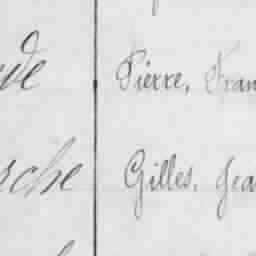 de Pierre, Fran
rche Gilles, Jea